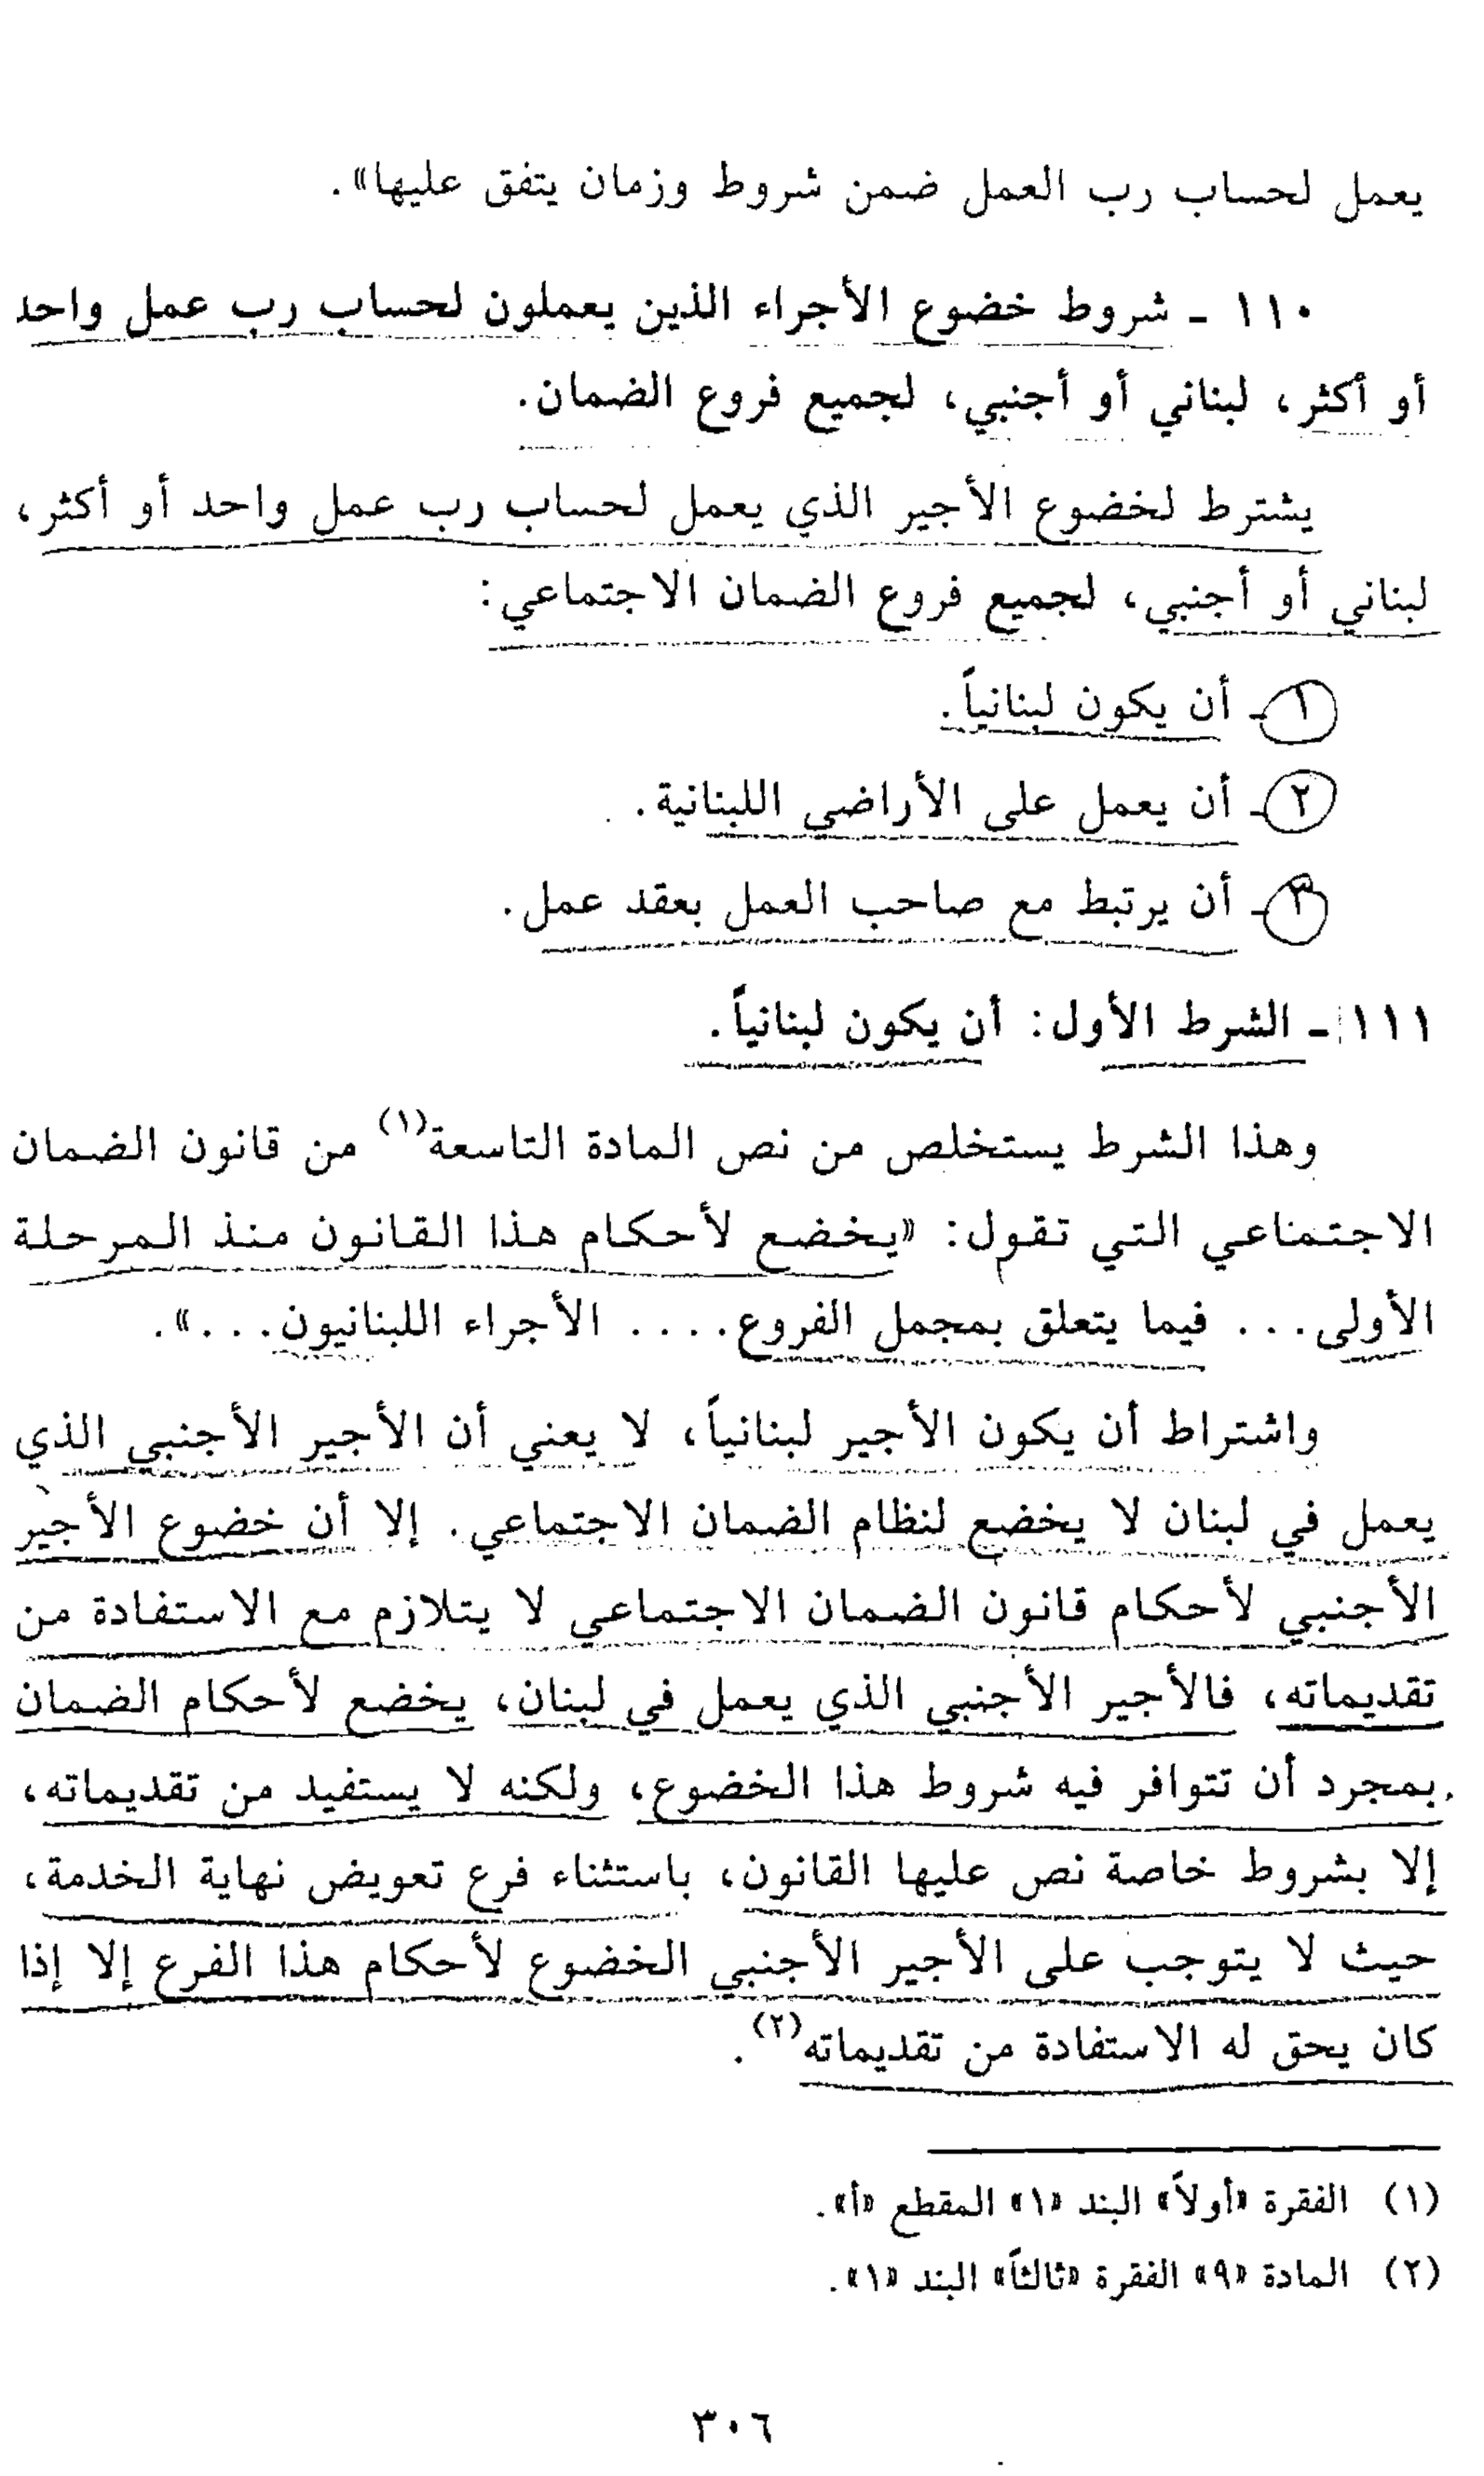 يعمل لحساب رب العمل ضمن شروط وزمان يتفق عليها».
١١٠ ـ شروط خضوع الأجراء الذين يعملون لحساب رب عمل واحد
أو أكثر، لبناني أو أجنبي، لجميع فروع الضمان.
يشترط لخضوع الأجير الذي يعمل لحساب رب عمل واحد أو أكثر،
لبناني أو أجنبي، لجميع فروع الضمان الاجتماعي:
١ـ أن يكون لبنانياً.
٢ـ أن يعمل على الأراضي اللبنانية.
٣ـ أن يرتبط مع صاحب العمل بعقد عمل.
١١١ ـ الشرط الأول: أن يكون لبنانياً.
وهذا الشرط يستخلص من نص المادة التاسعة(١) من قانون الضمان
الاجتماعي التي تقول: «يخضع لأحكام هذا القانون منذ المرحلة
الأولى... فيما يتعلق بمجمل الفروع.... الأجراء اللبنانيون...».
واشتراط أن يكون الأجير لبنانياً، لا يعني أن الأجير الأجنبي الذي
يعمل في لبنان لا يخضع لنظام الضمان الاجتماعي. إلا أن خضوع الأجير
الأجنبي لأحكام قانون الضمان الاجتماعي لا يتلازم مع الاستفادة من
تقديماته، فالأجير الأجنبي الذي يعمل في لبنان، يخضع لأحكام الضمان
بمجرد أن تتوافر فيه شروط هذا الخضوع، ولكنه لا يستفيد من تقديماته،
إلا بشروط خاصة نص عليها القانون، باستثناء فرع تعويض نهاية الخدمة،
حيث لا يتوجب على الأجير الأجنبي الخضوع لأحكام هذا الفرع إلا إذا
كان يحق له الاستفادة من تقديماته(٢).
(١) الفقرة «أولاً» البند «١» المقطع «أ».
(٢) المادة «٩» الفقرة «ثالثاً» البند «١».
٣٠٦